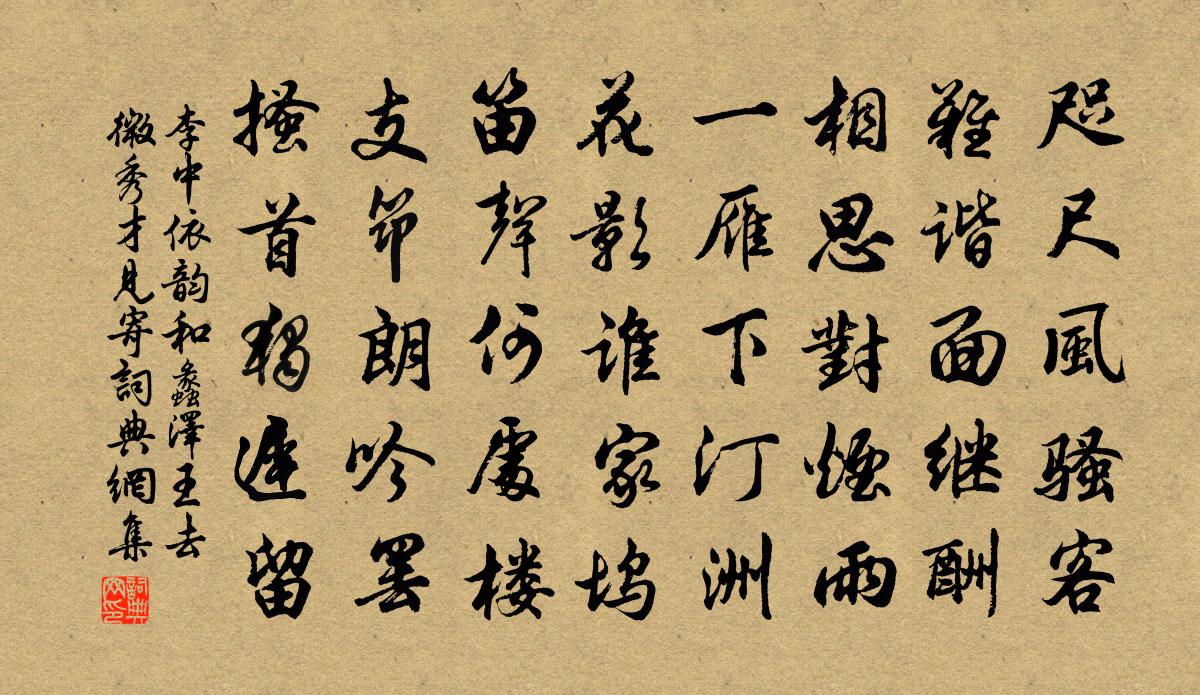 咫尺風騷客
難谐面继酬
相思對煙雨
一雁下汀洲
花影谁家坞
笛聲何處楼
支筇朗吟罢
搔首獨遲留
李中依韵和蠡澤王去
微秀才見寄詞典網集
詞典网印